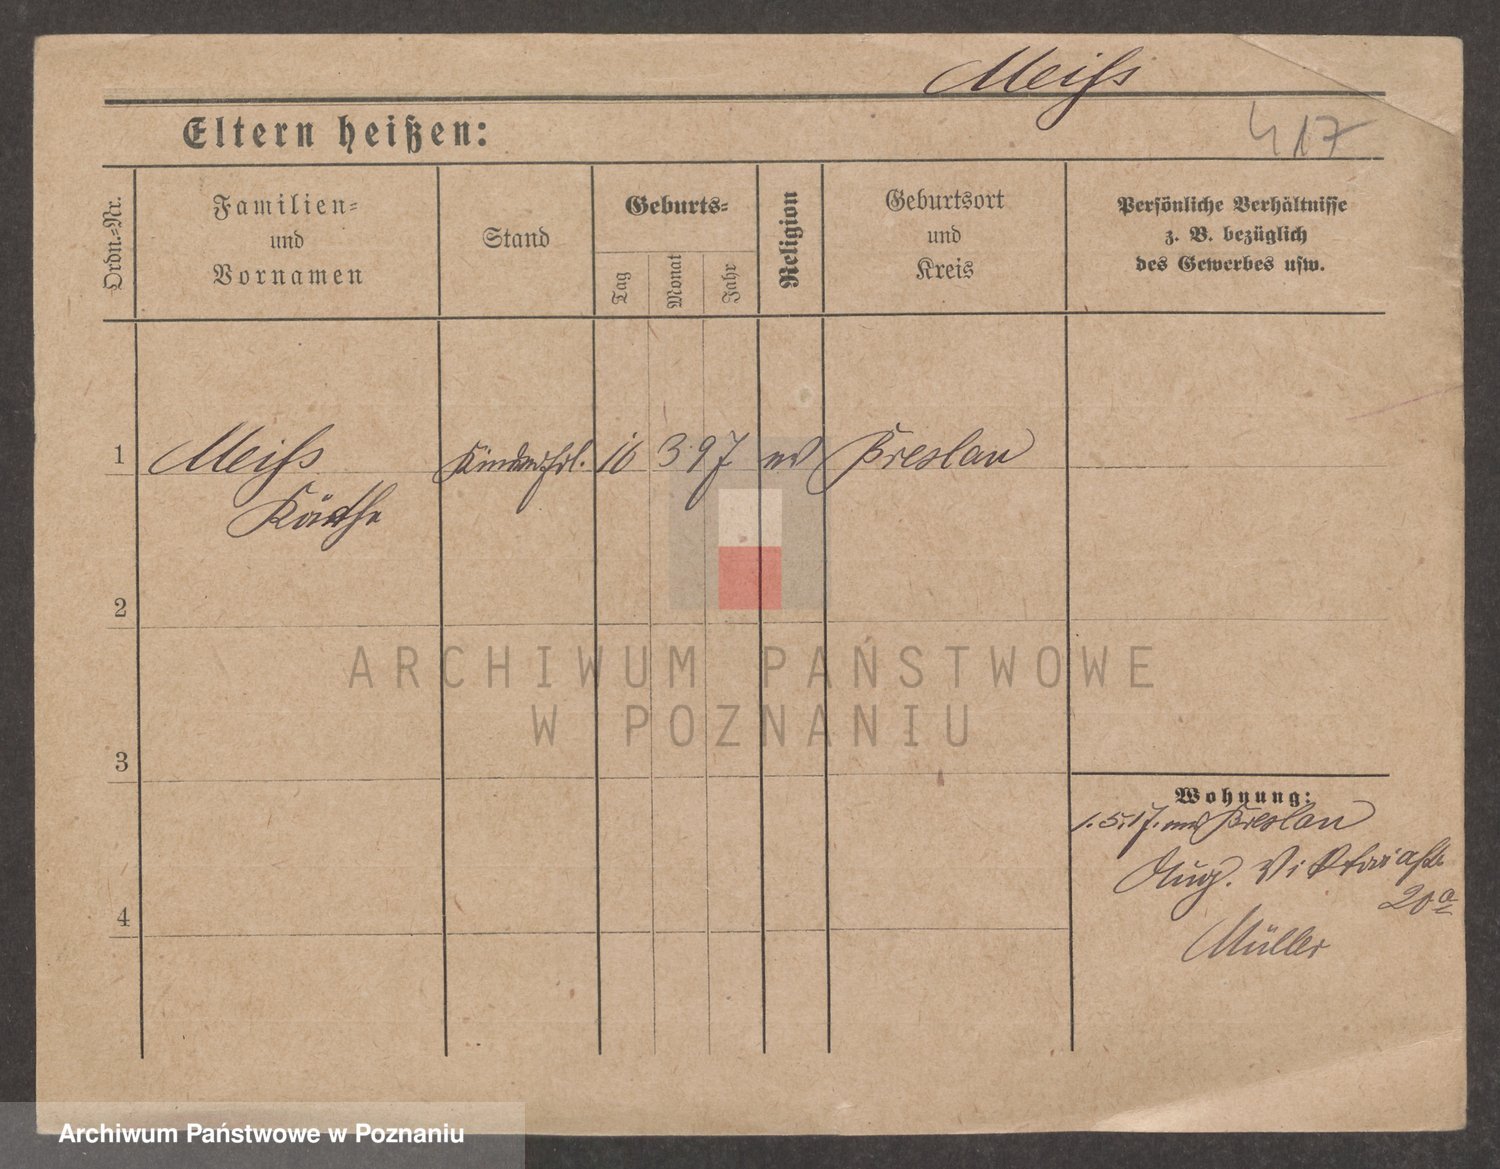 Meiß
Eltern heißen:
417
Ordn.-Nr.
Familien-
und
Vornamen
Stand
Geburts-
Tag
Monat
Jahr
Religion
Geburtsort
und
Kreis
Persönliche Verhältnisse
z. B. bezüglich
des Gewerbes usw.
1 Meiß Kinderfrl. 16 3 97 ev Breslau
Käthe
2
ARCHIWUM PAŃSTWOWE
W POZNANIU
3
Wohnung:
1.5.17. Breslau
Aug. Viktoriastr.
20a
Müller
4
Archiwum Państwowe w Poznaniu